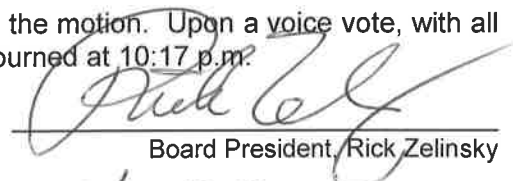 the motion. Upon a voice vote, with all
ourned at 10:17 p.m.
Board President, Rick Zelinsky